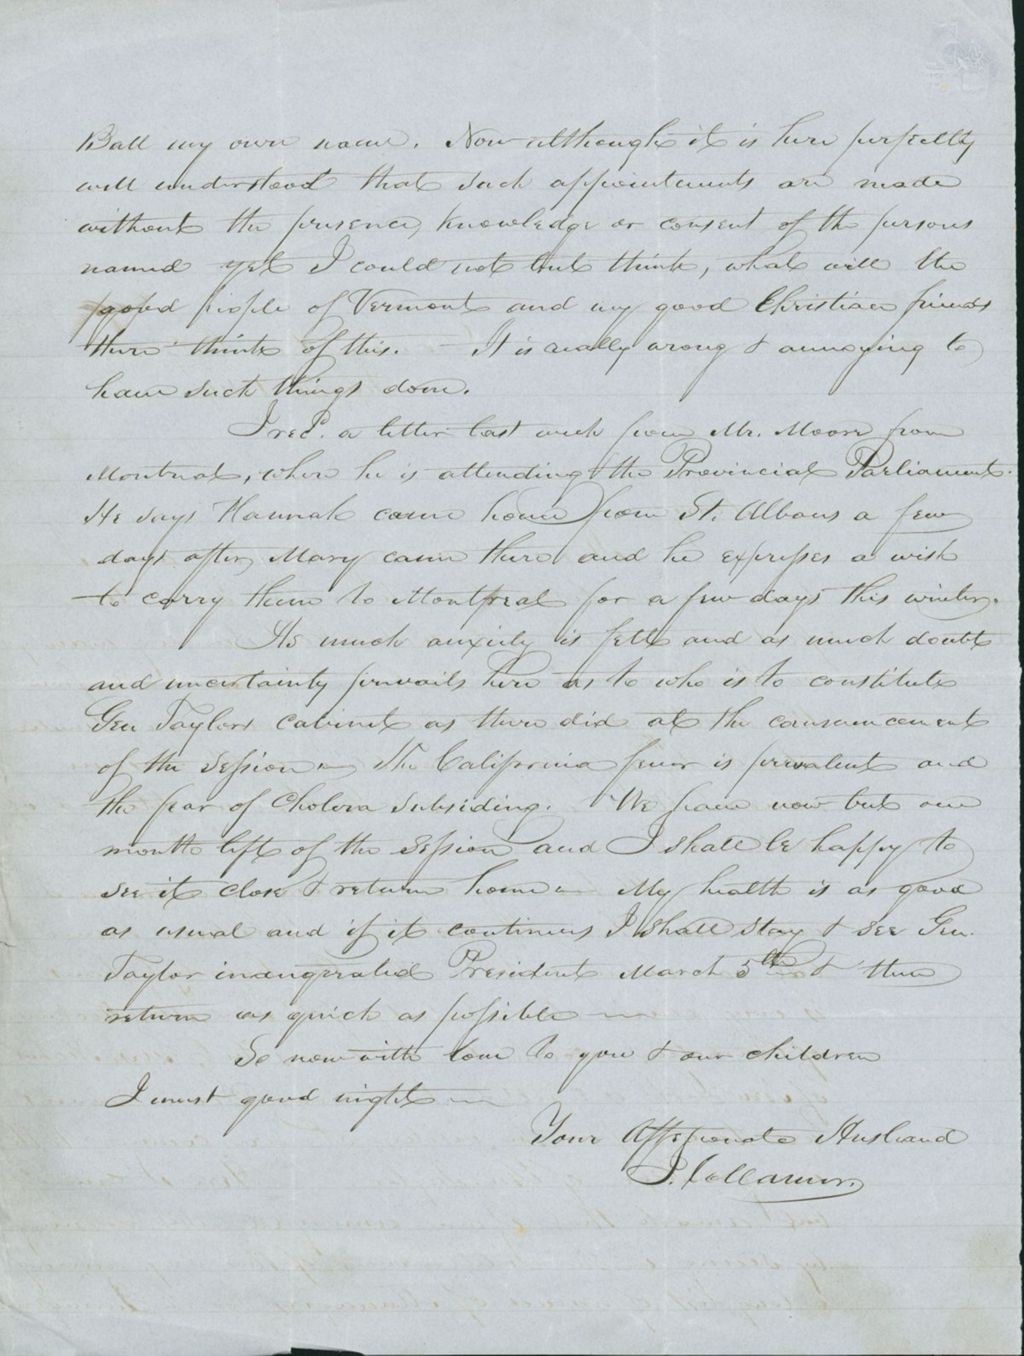 Ball my own name. Now although it is here perfectly
well understood that such appointments are made
without the presence, knowledge or consent of the persons
named yet I could not but think, what will the
good people of Vermont and my good Christian friends
there think of this. — It is really wrong & annoying to
have such things done.
I recd. a letter last week from Mr. Moore from
Montreal, where he is attending the Provincial Parliament.
He says Hannah came home from St. Albans a few
days after Mary came there and he expresses a wish
to carry them to Montreal for a few days this winter.
As much anxiety is felt and as much doubt
and uncertainty prevails here as to who is to constitute
Gen Taylors cabinet as there did at the commencement
of the Session — The California fever is prevalent and
the fear of Cholera subsiding. We have now but one
month left of the Session and I shall be happy to
see it close & return home — My health is as good
as usual and if it continues I shall stay & see Gen.
Taylor inaugerated President March 5th & then
return as quick as possible —
So now with love to you & our children
I must good night —
Your Affectionate Husband
J. Collamer.